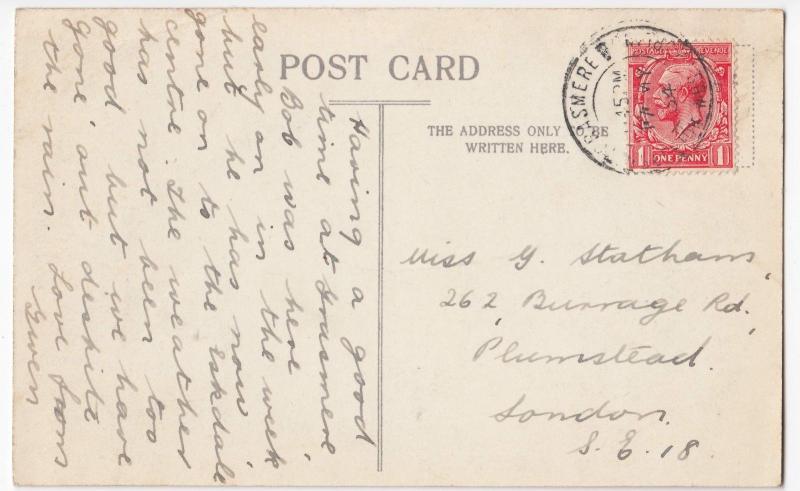 POST CARD
THE ADDRESS ONLY TO BE
WRITTEN HERE.
GRASMERE
POSTAGE REVENUE
1 ONE PENNY 1
Having a good
time at Grasmere
Bob was here
early on in the week
but he has now
gone on to the Eskdale
centre. The weather
has not been too
good but we have
gone out despite
the rain. Love from
Gwen
Miss G. Statham,
262, Burrage Rd.
Plumstead.
London.
S.E.18.